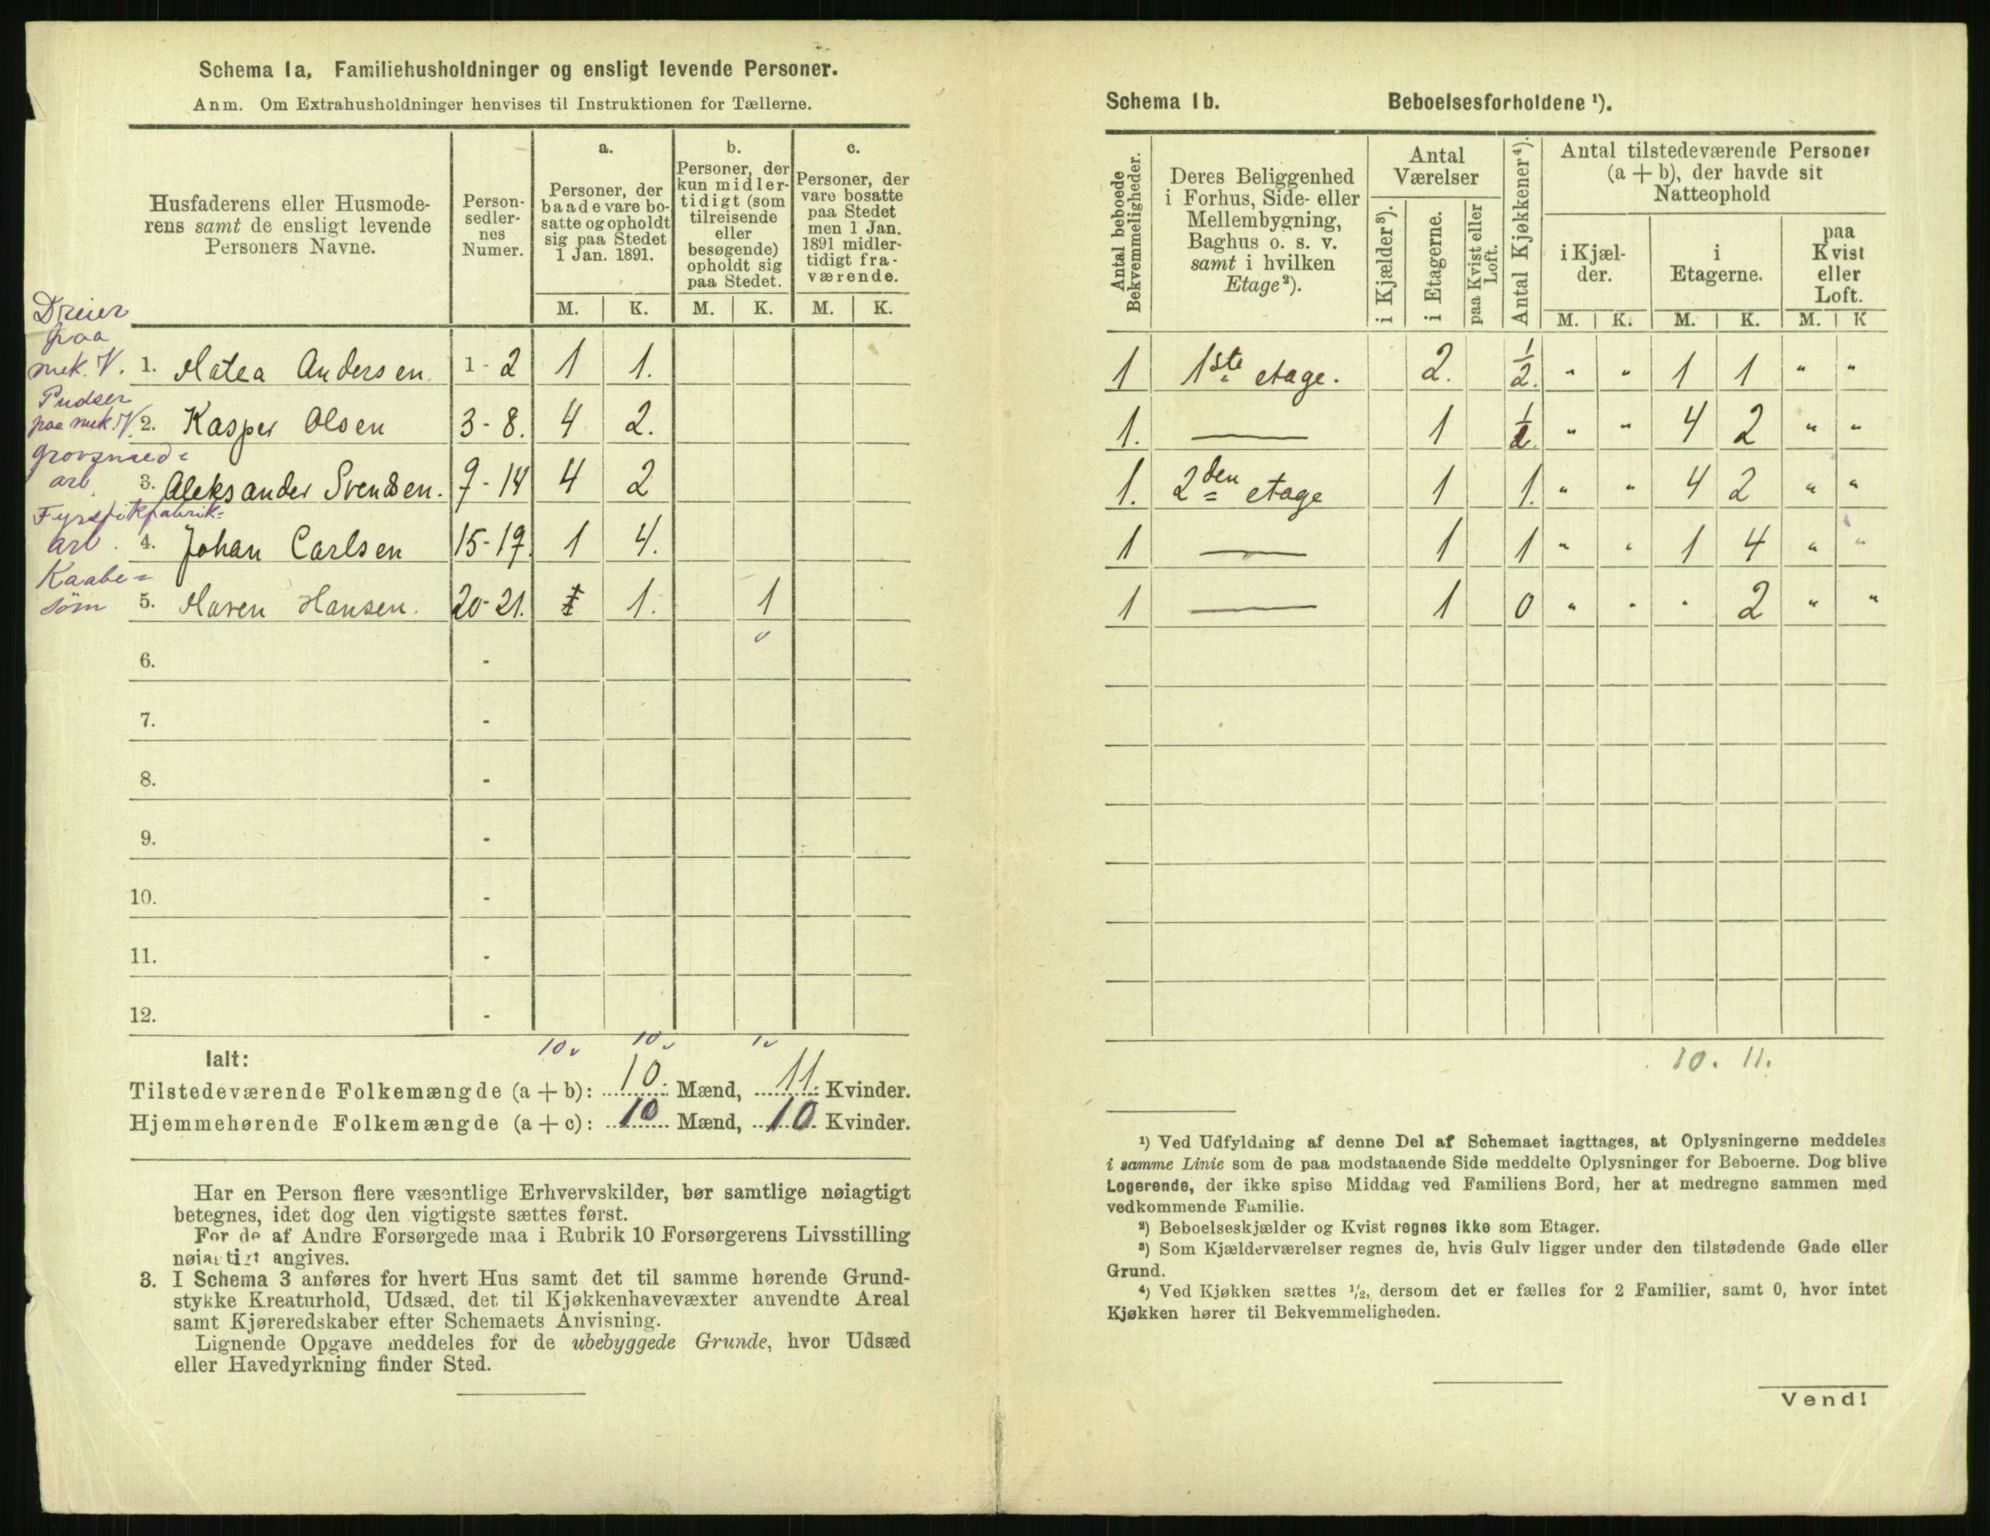 Schema 1a, Familiehusholdninger og ensligt levende Personer.
Anm. Om Extrahusholdninger henvises til Instruktionen for Tællerne.
Husfaderens eller Husmode-
rens samt de ensligt levende
Personers Navne.
Person-
sedler-
nes
Numer.
a.
Personer, der
baade vare bo-
satte og opholdt
sig paa Stedet
1 Jan. 1891.
b.
Personer, der
kun midler-
tidigt (som
tilreisende
eller
besøgende)
opholdt sig
paa Stedet.
c.
Personer, der
vare bosatte
paa Stedet
men 1 Jan.
1891 midler-
tidigt fra-
værende.
M. K. M. K. M. K.
Dreier
paa
mek. V. 1. Matea Andersen. 1 - 2 1 1.
Pudser
paa mek. V. 2. Kasper Olsen 3 - 8. 4 2.
Grovsmed=
arb. 3. Aleksander Svendsen. 9 - 14 4 2
Fyrstikfabrik=
arb. 4. Johan Carlsen 15 - 19. 1 4.
Kaabe=
søm 5. Maren Hansen. 20 - 21. 1. 1
6. -
7. -
8. -
9. -
10. -
11. -
12. -
10. 10. 1.
Ialt:
Tilstedeværende Folkemængde (a + b): 10. Mænd, 11. Kvinder.
Hjemmehørende Folkemængde (a + c): 10 Mænd, 10. Kvinder.
Har en Person flere væsentlige Erhvervskilder, bør samtlige nøiagtigt
betegnes, idet dog den vigtigste sættes først.
For de af Andre Forsørgede maa i Rubrik 10 Forsørgerens Livsstilling
nøiagtigt angives.
3. I Schema 3 anføres for hvert Hus samt det til samme hørende Grund-
stykke Kreaturhold, Udsæd, det til Kjøkkenhavevæxter anvendte Areal
samt Kjøreredskaber efter Schemaets Anvisning.
Lignende Opgave meddeles for de ubebyggede Grunde, hvor Udsæd
eller Havedyrkning finder Sted.
Schema 1b. Beboelsesforholdene ¹).
Antal beboede
Bekvemmeligheder.
Deres Beliggenhed
i Forhus, Side- eller
Mellembygning,
Baghus o. s. v.
samt i hvilken
Etage²).
Antal
Værelser
i Kjælder³).
i Etagerne.
paa Kvist eller
Loft.
Antal Kjøkkener⁴).
Antal tilstedeværende Personer
(a + b), der havde sit
Natteophold
i Kjæl-
der.
i
Etagerne.
paa
Kvist
eller
Loft.
M. K. M. K. M. K
1 1ste etage. 2. 1/2. " " 1 1 " "
1. — 1 1/2. " " 4 2 " "
1. 2den etage 1 1. " " 4 2 " "
1 — 1 1 " " 1 4 " "
1 — 1 0 " " " 2 " "
10. 11.
¹) Ved Udfyldning af denne Del af Schemaet iagttages, at Oplysningerne meddeles
i samme Linie som de paa modstaaende Side meddelte Oplysninger for Beboerne. Dog blive
Logerende, der ikke spise Middag ved Familiens Bord, her at medregne sammen med
vedkommende Familie.
²) Beboelseskjælder og Kvist regnes ikke som Etager.
³) Som Kjælderværelser regnes de, hvis Gulv ligger under den tilstødende Gade eller
Grund.
⁴) Ved Kjøkken sættes ½, dersom det er fælles for 2 Familier, samt 0, hvor intet
Kjøkken hører til Bekvemmeligheden.
Vend!